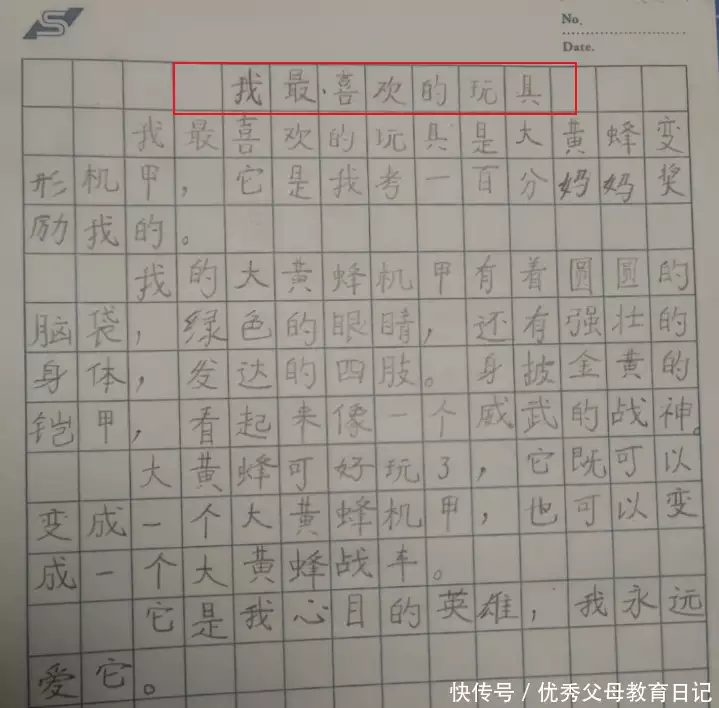 No.
Date.
我最喜欢的玩具
我最喜欢的玩具是大黄蜂变
形机甲，它是我考一百分妈妈奖
励我的。
我的大黄蜂机甲有着圆圆的
脑袋，绿色的眼睛，还有强壮的
身体，发达的四肢。身披金黄的
铠甲，看起来像一个威武的战神。
大黄蜂可好玩了，它既可以
变成一个大黄蜂机甲，也可以变
成一个大黄蜂战车。
它是我心目的英雄，我永远
爱它。
快传号／优秀父母教育日记